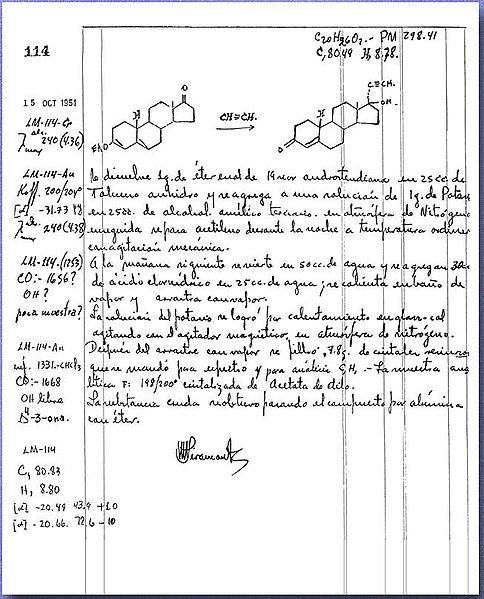 114
C20H26O2.- PM 298.41
C, 80.49 H, 8.78.
15 OCT 1951
LM-114-Cr
λ alc. max 240 (4.36)
O
H
EtO
CH≡CH.
C≡CH.
OH.
H
O
LM-114-Au
Koff. 200/204
[α] -31.73
240 (4.38)
Se disuelve 1g. de éter enol de 19 nor androstendiona en 25cc. de
Tolueno anhidro y se agrega a una solución de 1g. de Potasio
en 25cc. de alcohol amílico terciario. en atmósfera de Nitrógeno
enseguida se pasa acetileno durante la noche a temperatura ordinaria
con agitación mecánica.
LM-114. (1253)
CO:- 1656?
OH?
poca muestra?
A la mañana siguiente se vierte en 50cc. de agua y se agregan 30cc
de ácido clorhídrico en 25cc. de agua; se calienta en baño de
vapor y arrastra con vapor.
La solución del potasio se logró por calentamiento
agitando con el agitador magnético, en atmósfera de nitrógeno.
LM-114-Au
inf. 1331.-CHCl3
CO:- 1668
OH libre
Δ4-3-ona.
Después del arrastre con vapor se filtró, .78g. de cristales
que se mandó para espectro y para análisis C,H, .- La muestra ana
lítica F: 198/200° cristalizada de Acetato de etilo.
La substancia cruda se obtuvo pasando el compuesto por alúmina
con éter.
LM-114
C, 80.83
H, 8.80
[α] -20.49 43.9 +10
[α] -20.66. 72.6 -10